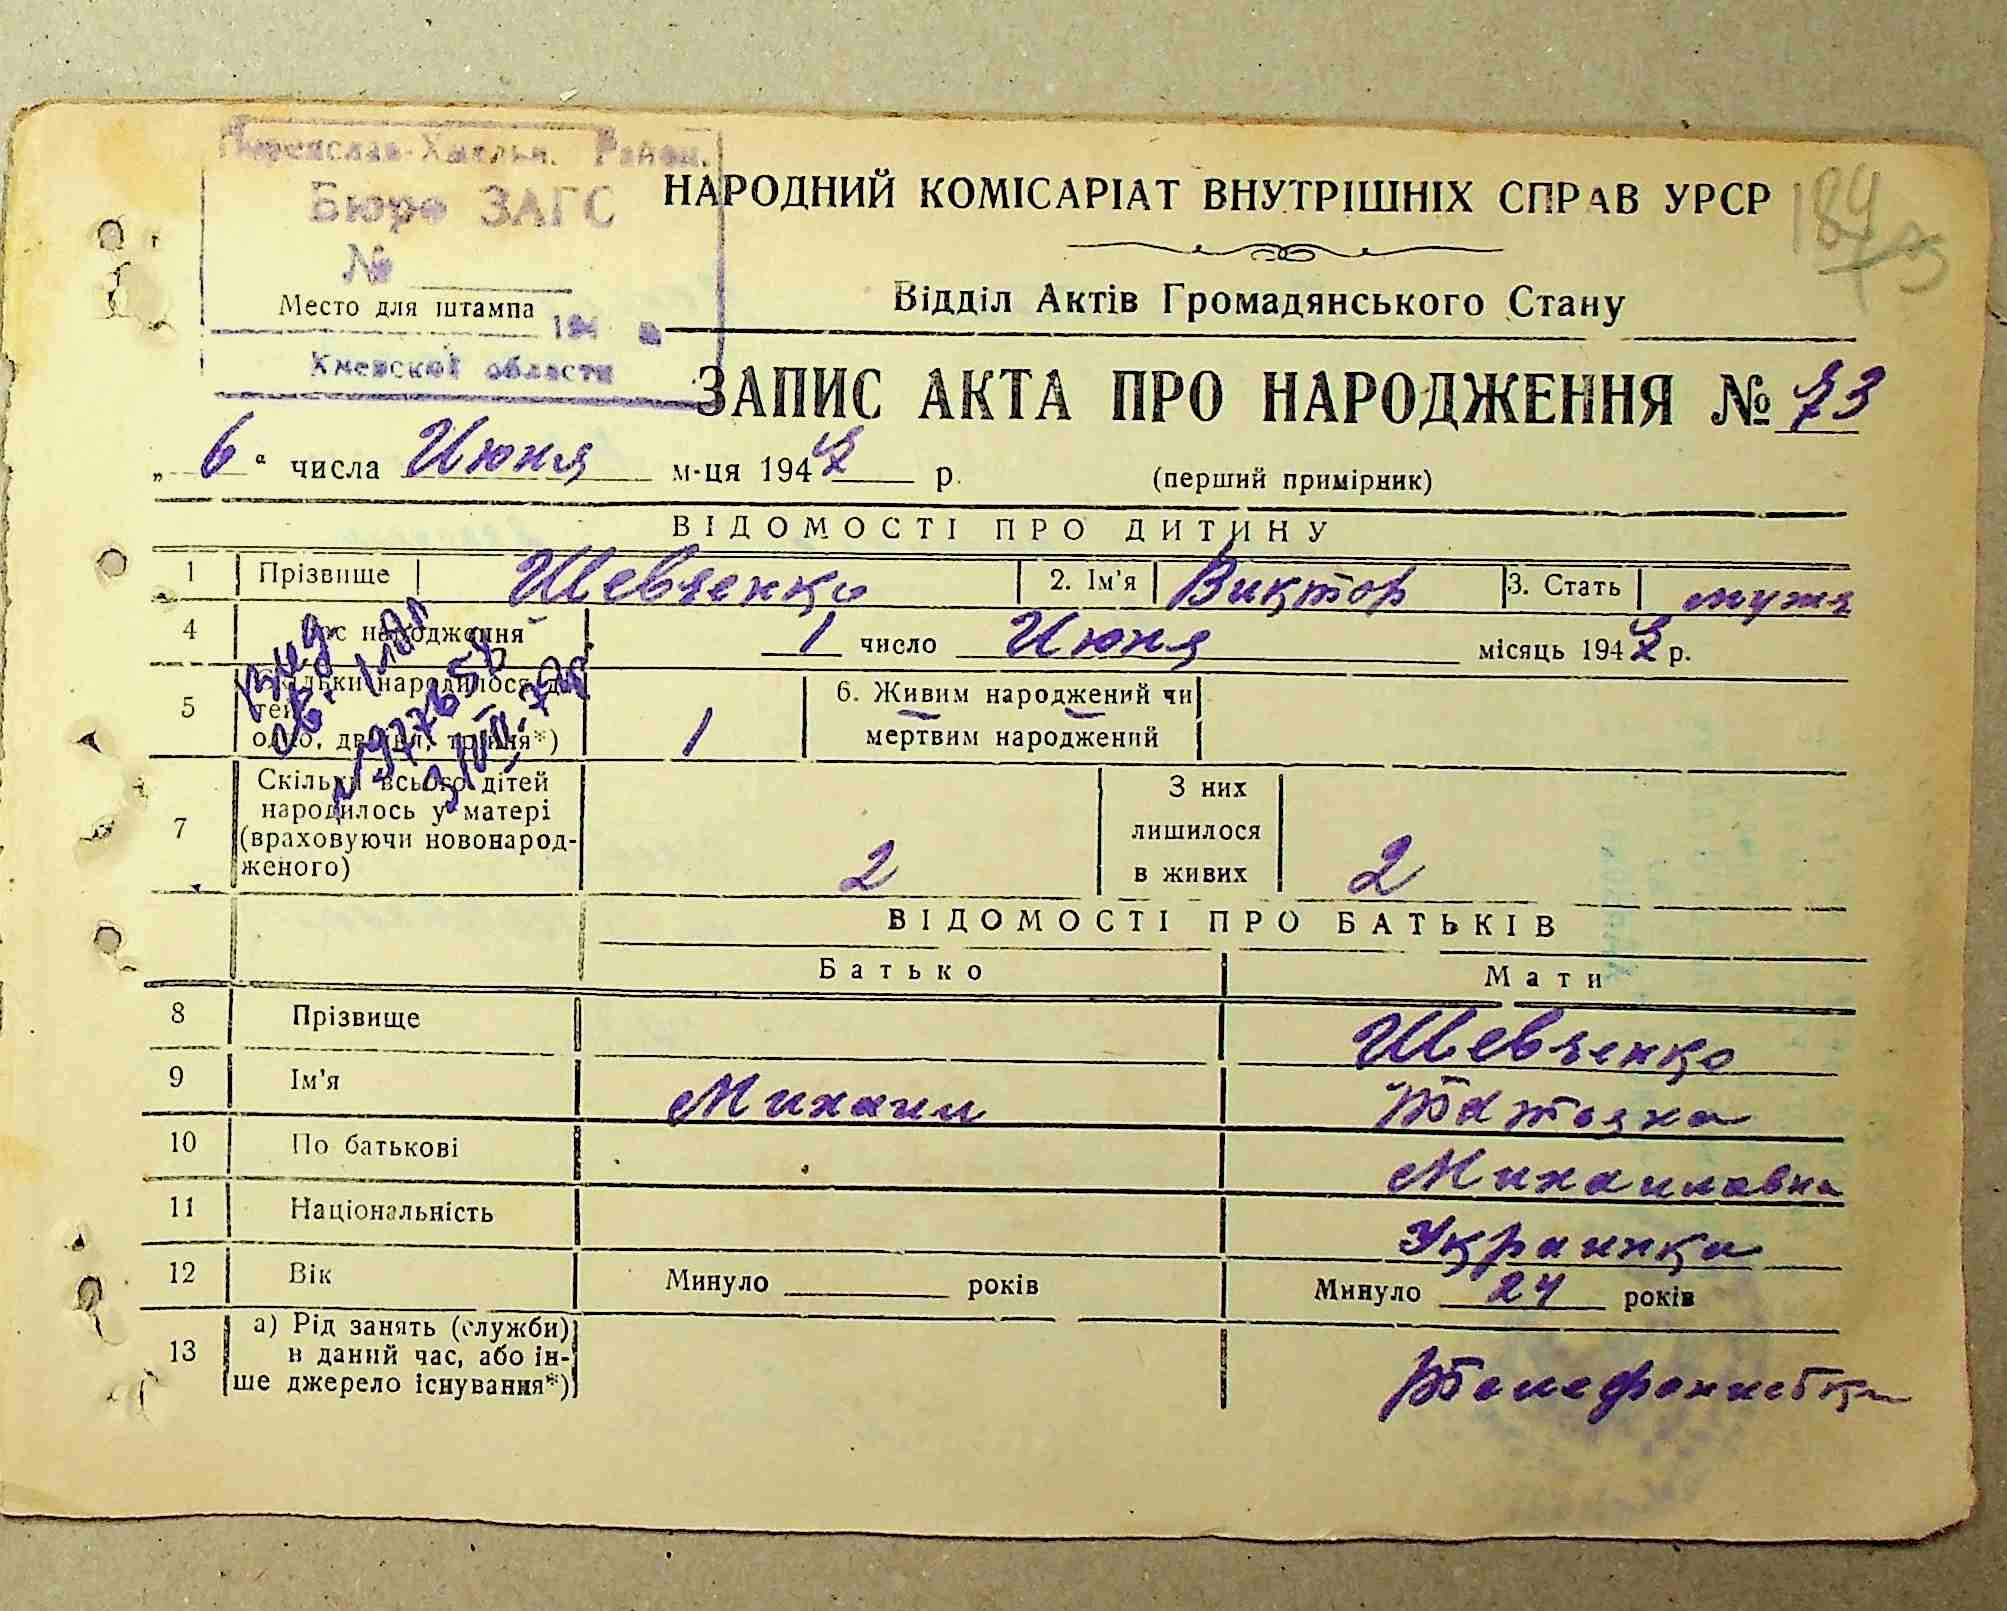 Переяслав-Хмельн. Район.
Бюро ЗАГС
№
Место для штампа
194
Киевской области
184
НАРОДНИЙ КОМІСАРІАТ ВНУТРІШНІХ СПРАВ УРСР
Відділ Актів Громадянського Стану
ЗАПИС АКТА ПРО НАРОДЖЕННЯ № 73
„ 6 “ числа Июня м-ця 1947 р. (перший примірник)
ВІДОМОСТІ ПРО ДИТИНУ
1 Прізвище Шевченко 2. Ім'я Виктор 3. Стать мужя
4 Час народження 1 число Июня місяць 1947 р.
5 Скільки народилося дітей 1 6. Живим народжений чи
одно, двійня, трійня*) мертвим народжений
7 Скільки всього дітей народилось у матері (враховуючи новонародженого) 2 З них лишилося в живих 2
ВІДОМОСТІ ПРО БАТЬКІВ
Батько Мати
8 Прізвище Шевченко
9 Ім'я Михаил Татьяна
10 По батькові Михаиловна
11 Національність Украинка
12 Вік Минуло років Минуло 24 років
13 а) Рід занять (служби)
в даний час, або ін-
ше джерело існування*) Телефонистка